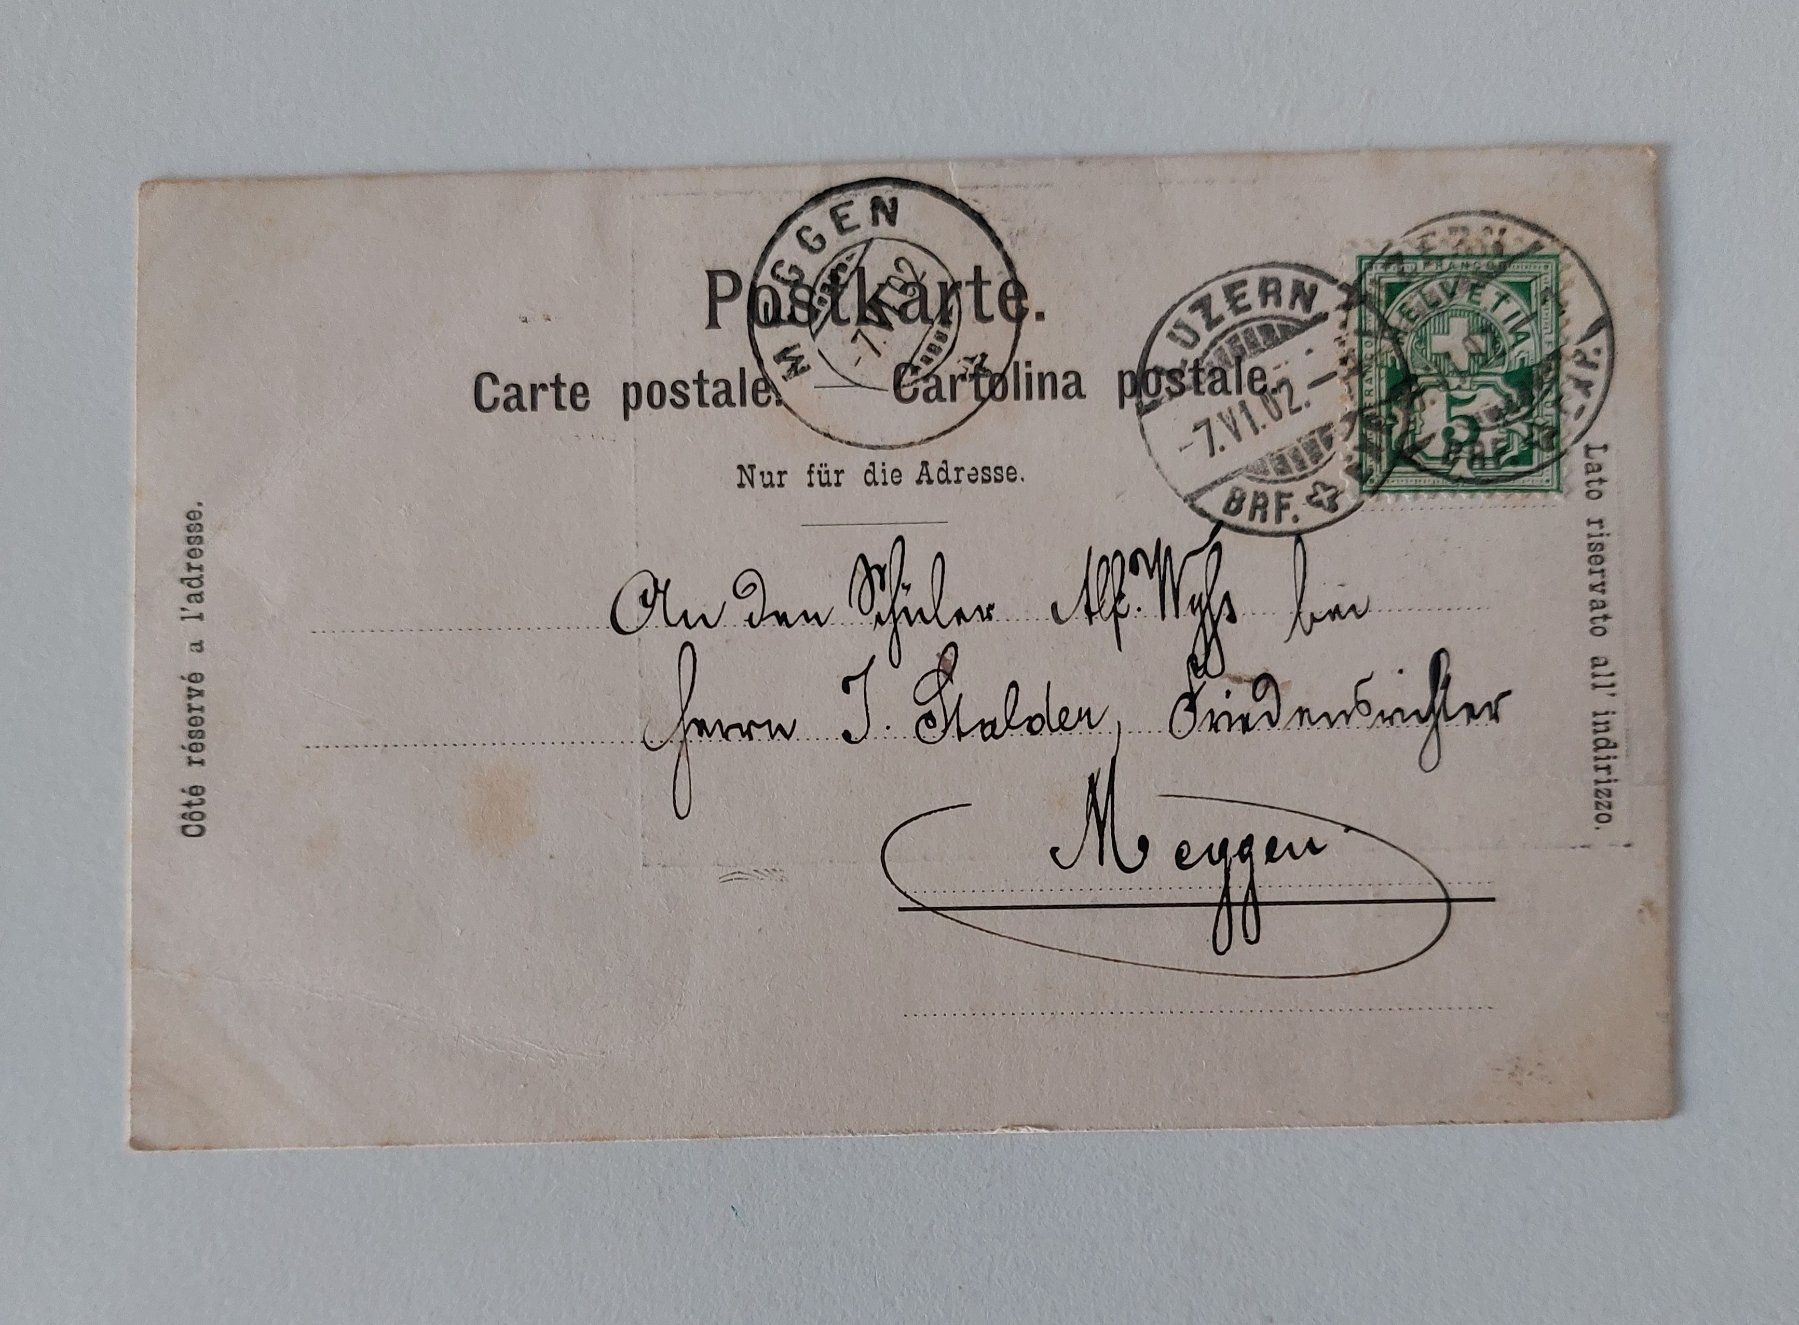 MEGGEN
-7.VI.02
Postkarte.
Carte postale. — Cartolina postale.
Nur für die Adresse.
LUZERN
-7.VI.02.-
BRF.
FRANCO
HELVETIA
5
BRF.
Côté réservé a l'adresse.
Lato riservato all' indirizzo.
An den Schüler Alf. Wyss bei
Herrn J. Stalder, Friedensrichter
Meggen